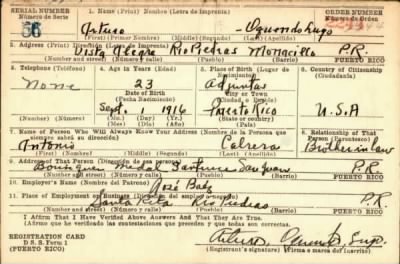 SERIAL NUMBER 1. Name (Print) Nombre (Letra de Imprenta) ORDER NUMBER
Número de Serie Número de Orden
56 Arturo Oquendo Lugo
(First) (Primero) (Middle) (Segundo) (Last) (Apellido)
2. Address (Print) Dirección (Letra de Imprenta)
Vista Alegre Rio Piedras Monacillo P.R.
(Number and street) (Número y calle) (Pueblo) (Barrio) PUERTO RICO
3. Telephone (Teléfono) 4. Age in Years (Edad) 5. Place of Birth (Lugar de Nacimiento) 6. Country of Citizenship (Ciudadanía)
None 23 Adjuntas
Date of Birth City or Town
(Fecha Nacimiento) (Ciudad o Pueblo)
Sept. 1 1916 Puerto Rico U.S.A
7. Name of Person Who Will Always Know Your Address (Nombre de la Persona que siempre sabrá su dirección) 8. Relationship of That Person (Parentesco)
Antonio Cabrera Brother in law
(First) (Primero) (Middle) (Segundo) (Last) (Apellido)
9. Address of That Person (Dirección de esa persona)
Santurce San Juan P.R.
(Number and street) (Número y calle) (Pueblo) (Barrio) PUERTO RICO
10. Employer's Name (Nombre del Patrono)
José Baez
11. Place of Employment or Business (Dirección del empleo o negocio)
Santa Rita Rio Piedras P.R.
(Number and street) (Número y calle) (Pueblo) (Barrio) PUERTO RICO
I Affirm That I Have Verified Above Answers And That They Are True.
(Afirmo que he verificado las contestaciones que preceden y que todas son correctas.)
REGISTRATION CARD
D. S. S. Form 1
(PUERTO RICO)
Arturo Oquendo Lugo
(Registrant's signature) (Firma o marca del inscrito)